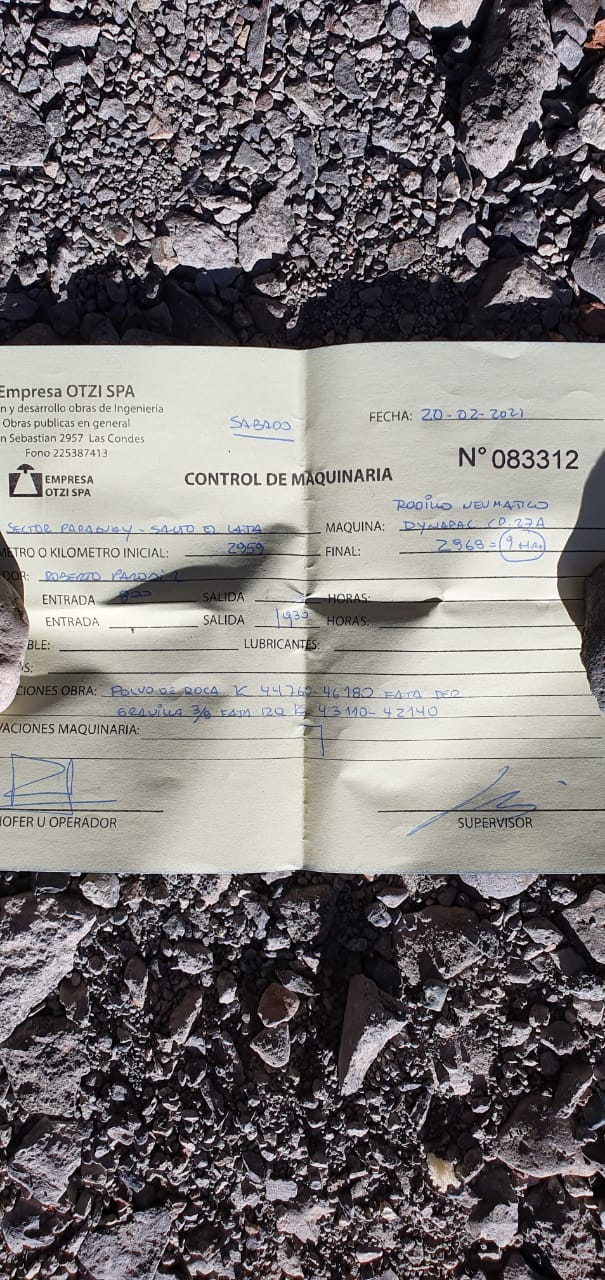 Empresa OTZI SPA
n y desarrollo obras de Ingeniería
Obras publicas en general
n Sebastian 2957 Las Condes
Fono 225387413
EMPRESA
OTZI SPA
SABADO
FECHA: 20-02-2021
N° 083312
CONTROL DE MAQUINARIA
RODILLO NEUMATICO
SECTOR PARAGUAY - SALTO EL LATA MAQUINA: DYNAPAC CP.27A
METRO O KILOMETRO INICIAL: 2959 FINAL: 2968 = 9 HRS
DOR: ROBERTO
ENTRADA 800 SALIDA HORAS:
ENTRADA SALIDA 1930 HORAS:
BLE: LUBRICANTES:
S:
CIONES OBRA: POLVO DE ROCA K 44760-46180 FATA DER
GRAVILLA 3/8 FATA IZQ K 43110-42140
VACIONES MAQUINARIA:
HOFER U OPERADOR
SUPERVISOR